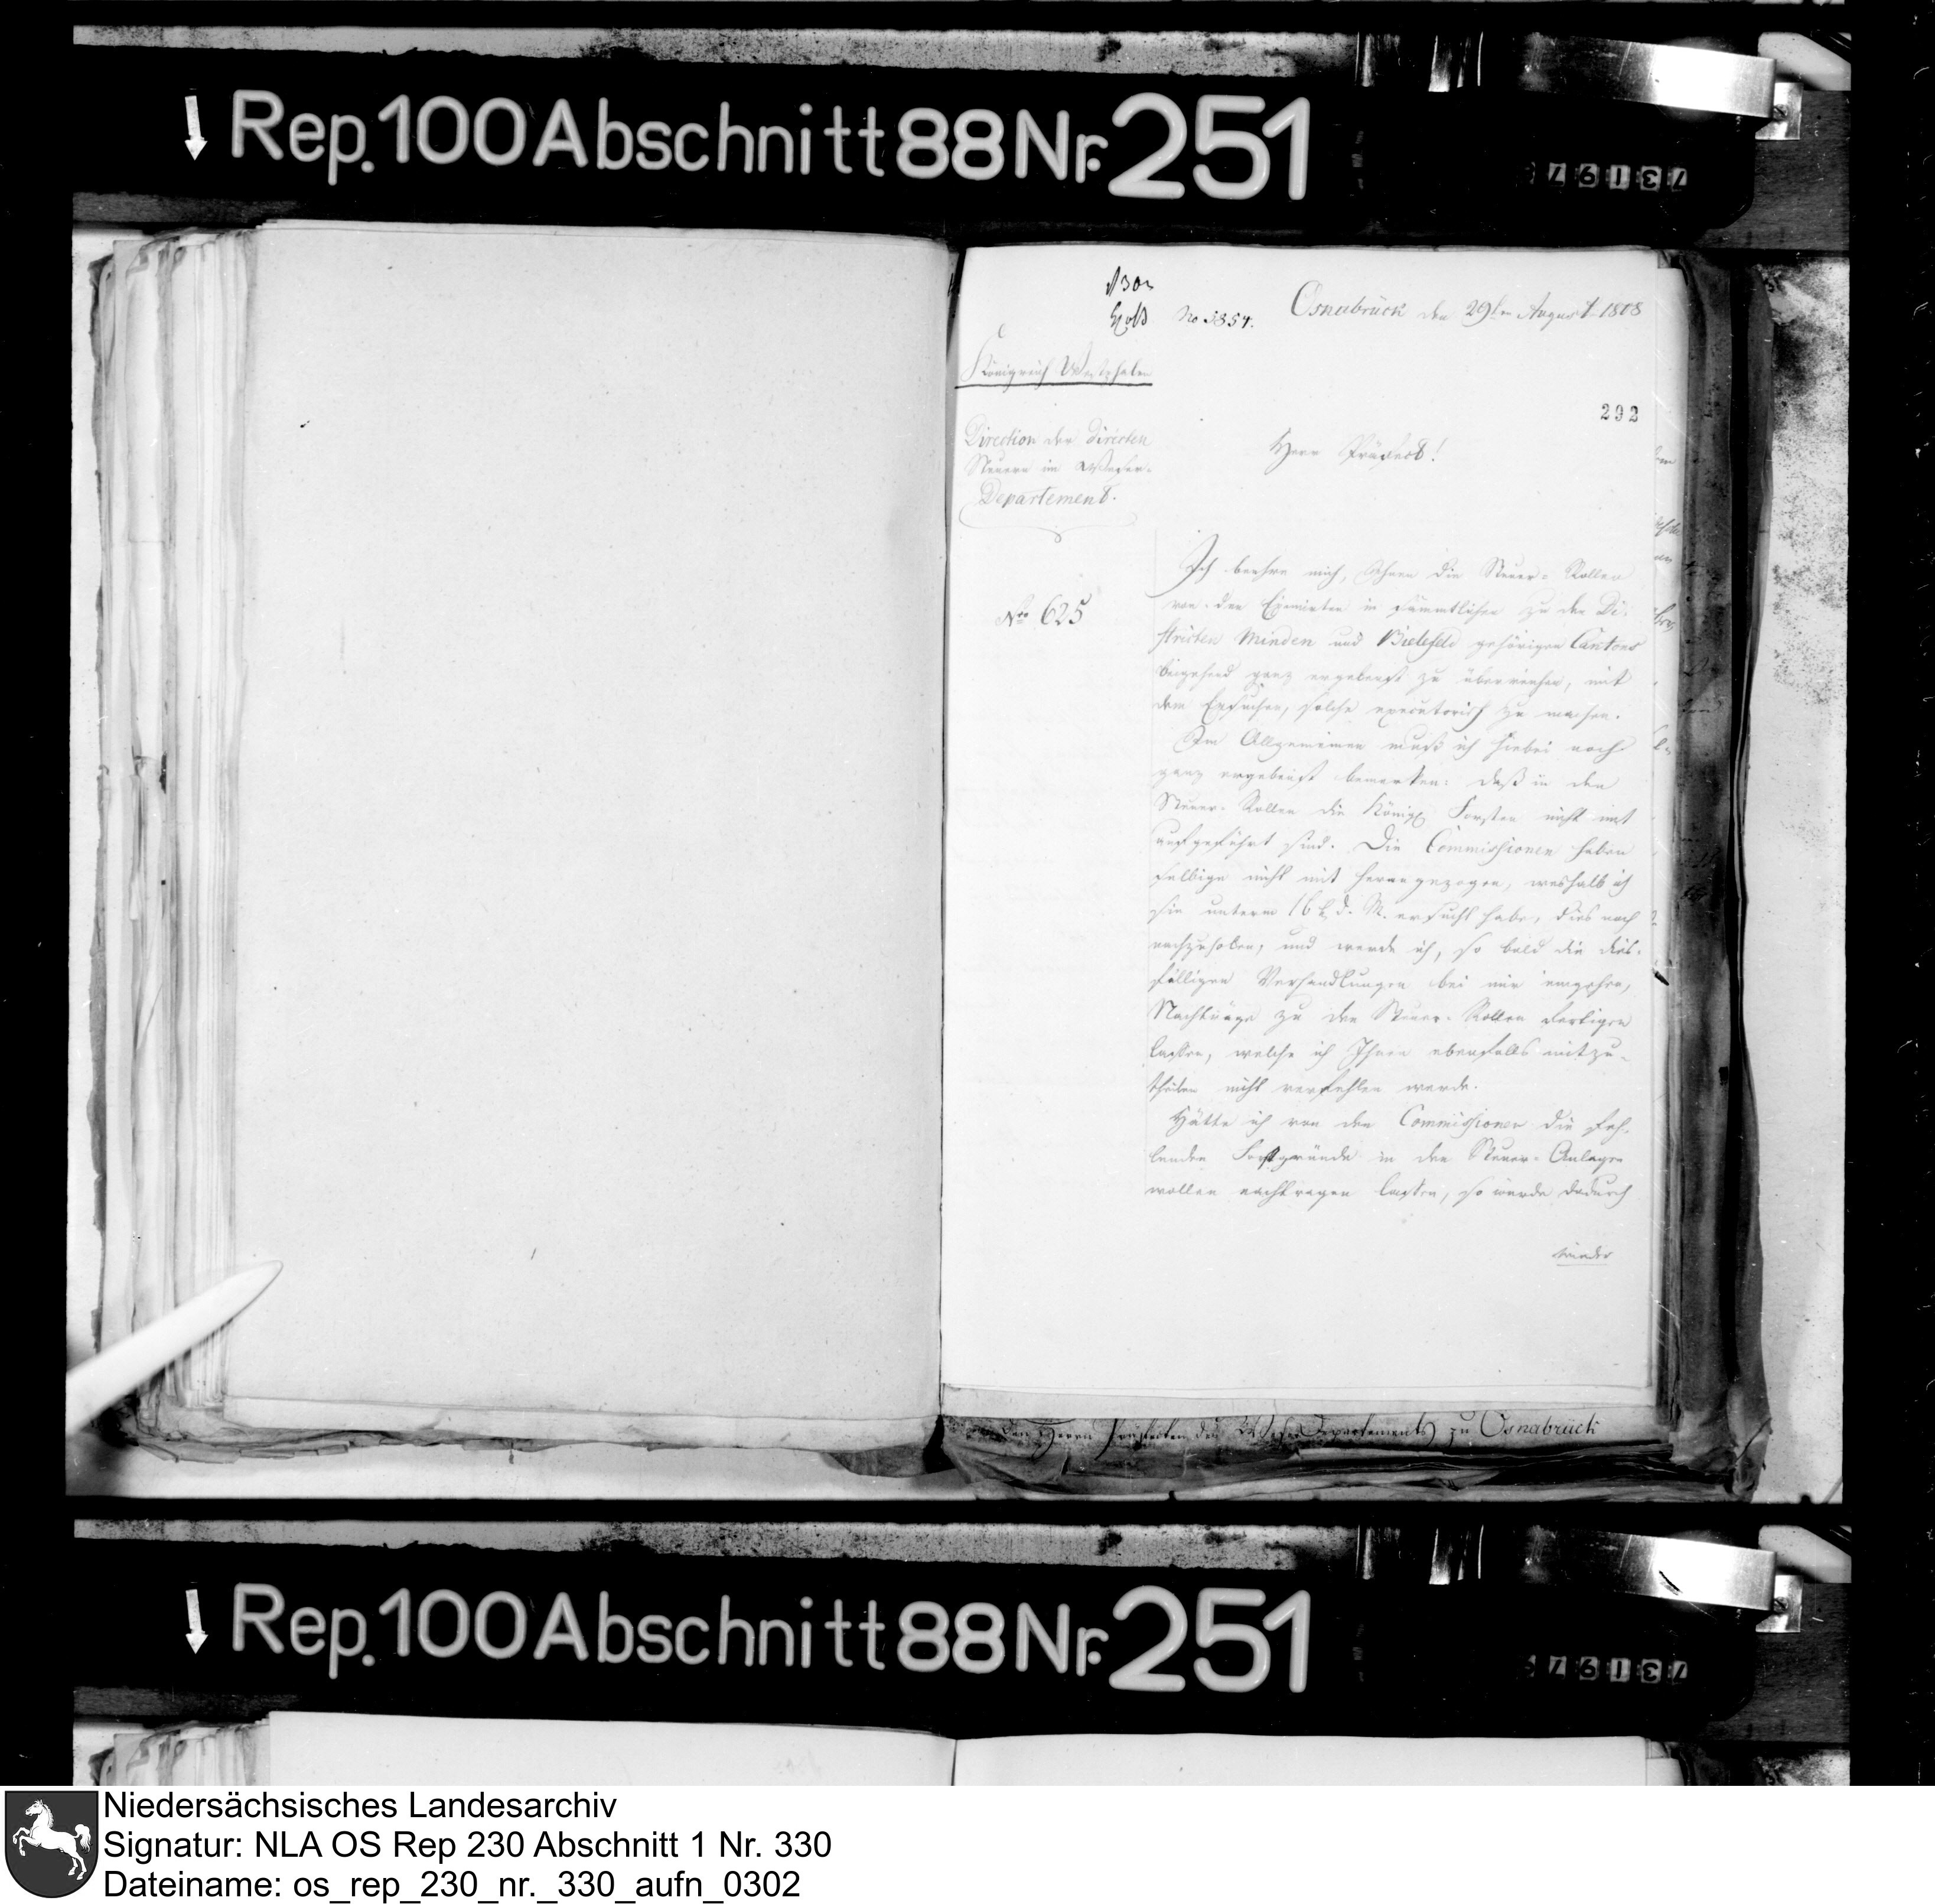 Rep. 100 Abschnitt 88 Nr. 251
73197
No 3854.
Osnabrück den 29ten August 1808
Königreich Westphalen
292
Direction der directen
Steuern im Weser-
Departement.
Herr Präfect!
No 625
Ich beehre mich, Ihnen die Steuer-Rollen
von den Eximirten in sämmtlichen zu den Di-
stricten Minden und Bielefeld gehörigen Cantons
beigehend ganz ergebenst zu überreichen, mit
dem Ersuchen, solche executorisch zu machen.
Im Allgemeinen muß ich hiebei noch
ganz ergebenst bemerken: daß in den
Steuer-Rollen die Königl. Forsten nicht mit
aufgeführt sind. Die Commissionen haben
selbige nicht mit herangezogen, weshalb ich
sie unterm 16t. d. M. ersucht habe, dies noch
nachzuholen, und werde ich, so bald die dies-
fälligen Verhandlungen bei mir eingehen,
Nachträge zu den Steuer-Rollen fertigen
lassen, welche ich Ihnen ebenfalls mitzu-
theilen nicht verfehlen werde.
Hätte ich von den Commissionen die feh-
lenden Forstgründe in den Steuer-Anlagen
wollen nachtragen lassen, so würde dadurch
wieder
den Herrn Präfecten des Weser Departements zu Osnabrück
Rep. 100 Abschnitt 88 Nr. 251
73197
Niedersächsisches Landesarchiv
Signatur: NLA OS Rep 230 Abschnitt 1 Nr. 330
Dateiname: os_rep_230_nr._330_aufn_0302